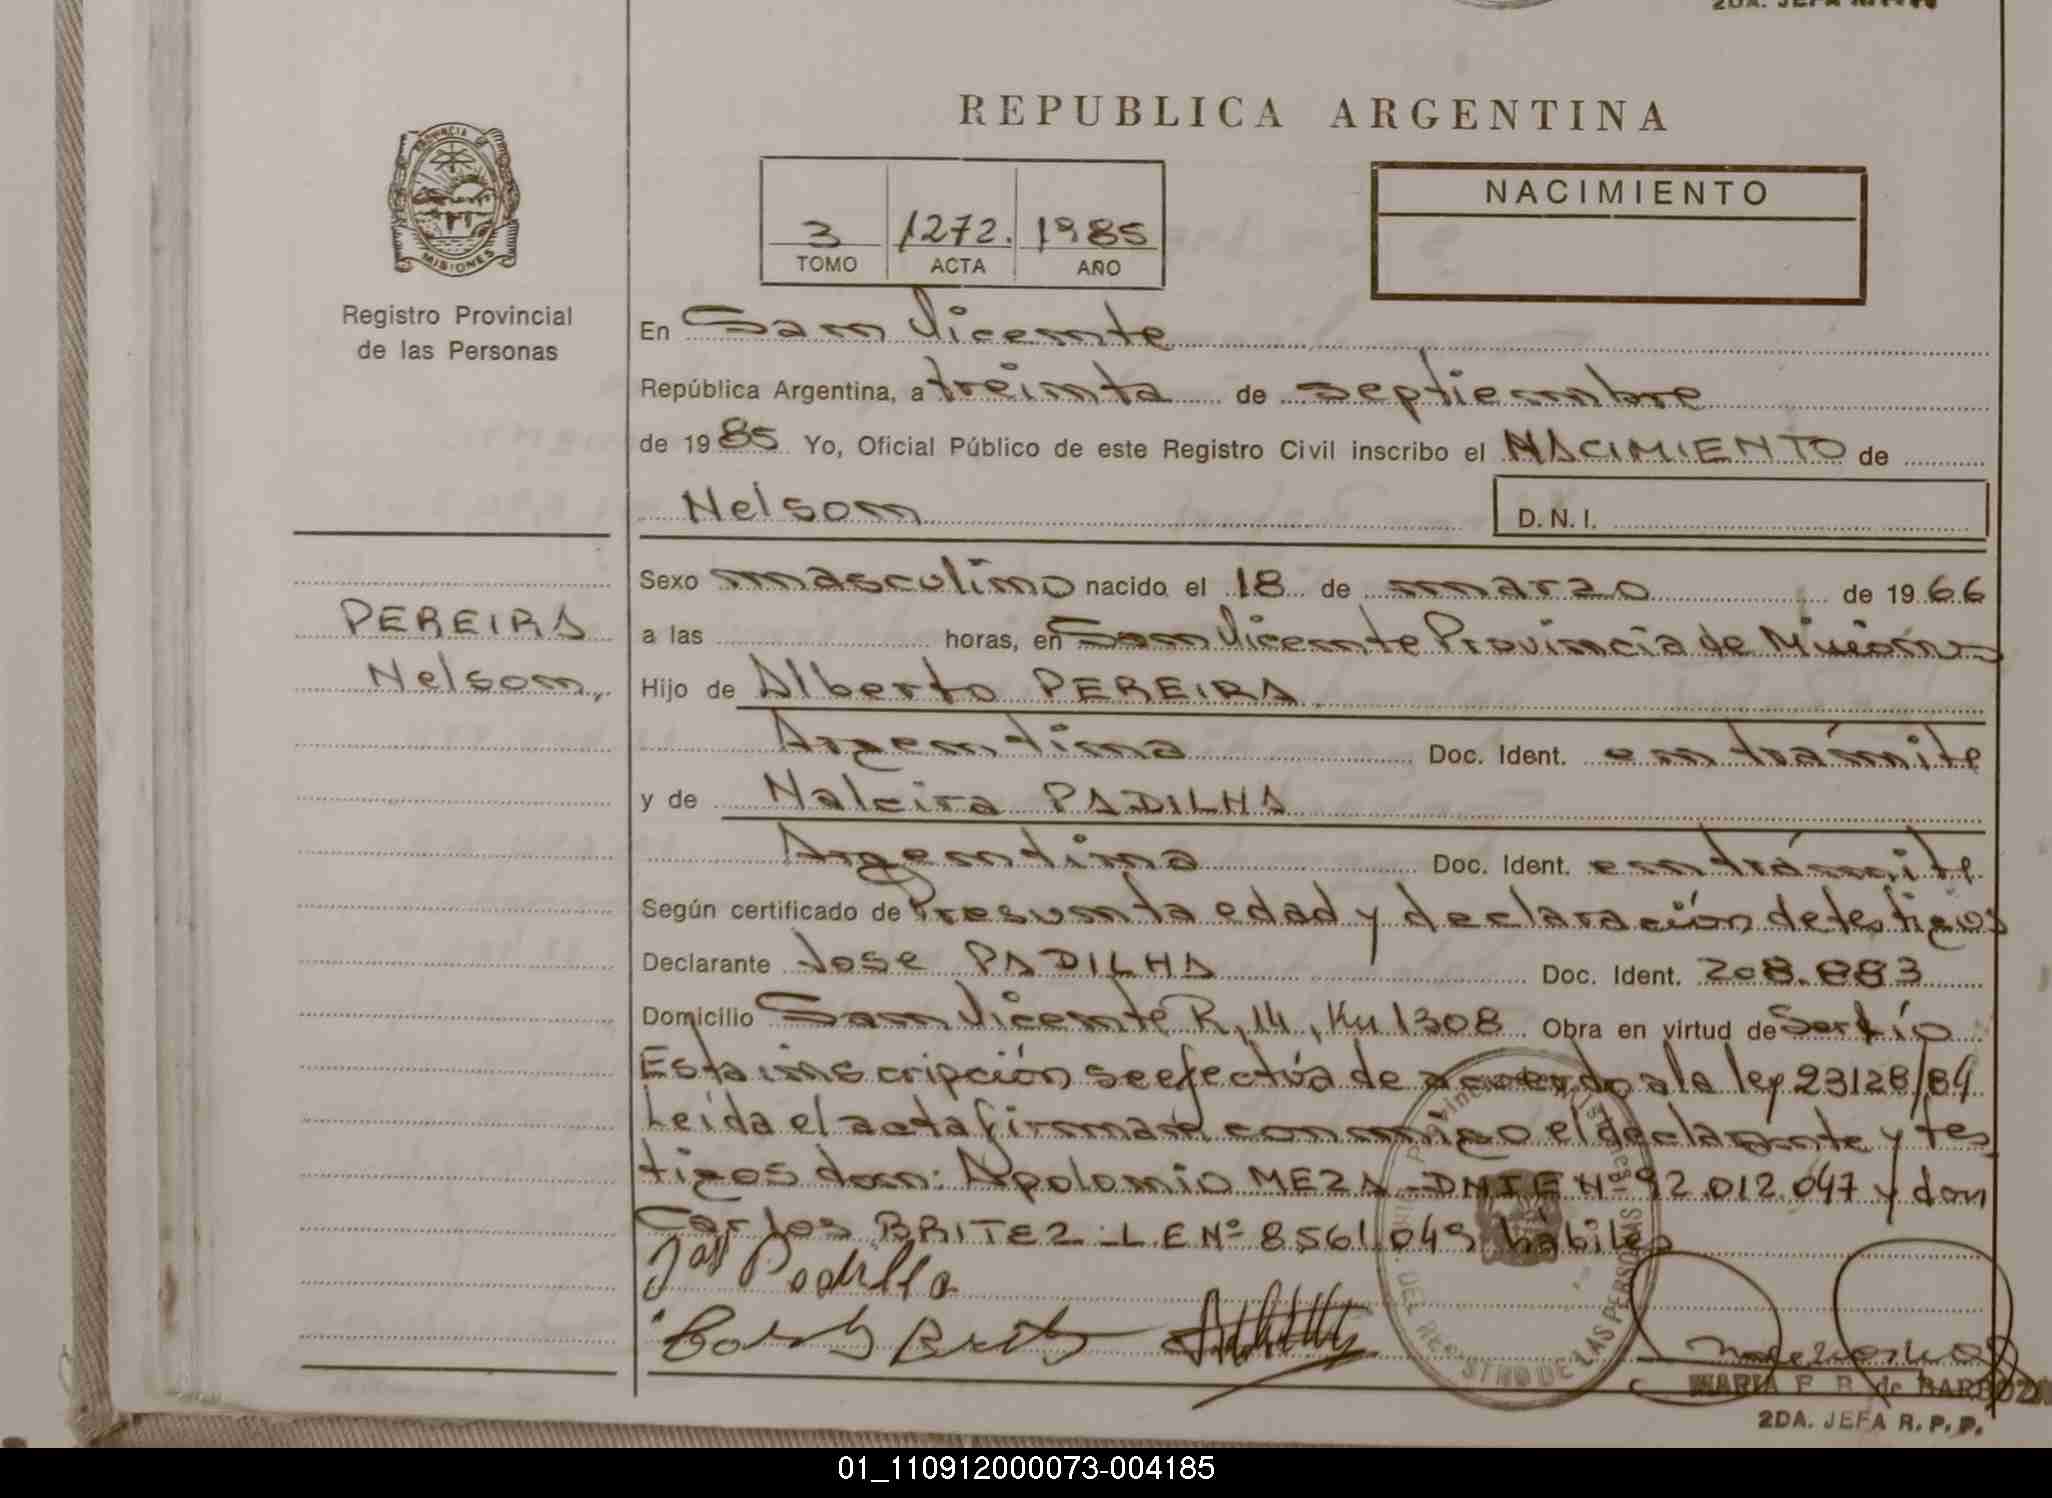 2DA. JEFA R.P.P.
REPUBLICA ARGENTINA
PROVINCIA DE
MISIONES
3 1272. 1985
TOMO ACTA AÑO
NACIMIENTO
Registro Provincial
de las Personas
En San Vicente
República Argentina, a treinta de septiembre
de 1985 Yo, Oficial Público de este Registro Civil inscribo el NACIMIENTO de
Nelson
D.N.I.
PEREIRA
Nelson,
Sexo masculino nacido el 18 de marzo de 1966
a las horas, en San Vicente Provincia de Misiones
Hijo de Alberto PEREIRA
Argentina Doc. Ident. en trámite
y de Nalcira PADILHA
Argentina Doc. Ident. en trámite
Según certificado de Presunta edad y declaración de testigos
Declarante Jose PADILHA Doc. Ident. 208.883
Domicilio San Vicente R, 14, Km 1308 Obra en virtud de
Esta inscripción se efectúa de acuerdo a la ley 23128/84
Leída el acta firman conmigo el declarante y tes
tigos don: Apolonio MEZA - DNIE Nº 92.012.047 y don
Carlos BRITEZ - L E Nº 8561.049 hábiles
José Padilla
Carlos Britez
DEL REGISTRO DE LAS PERSONAS
MARIA F. B. de BARBOZA
2DA. JEFA R.P.P.
01_110912000073-004185